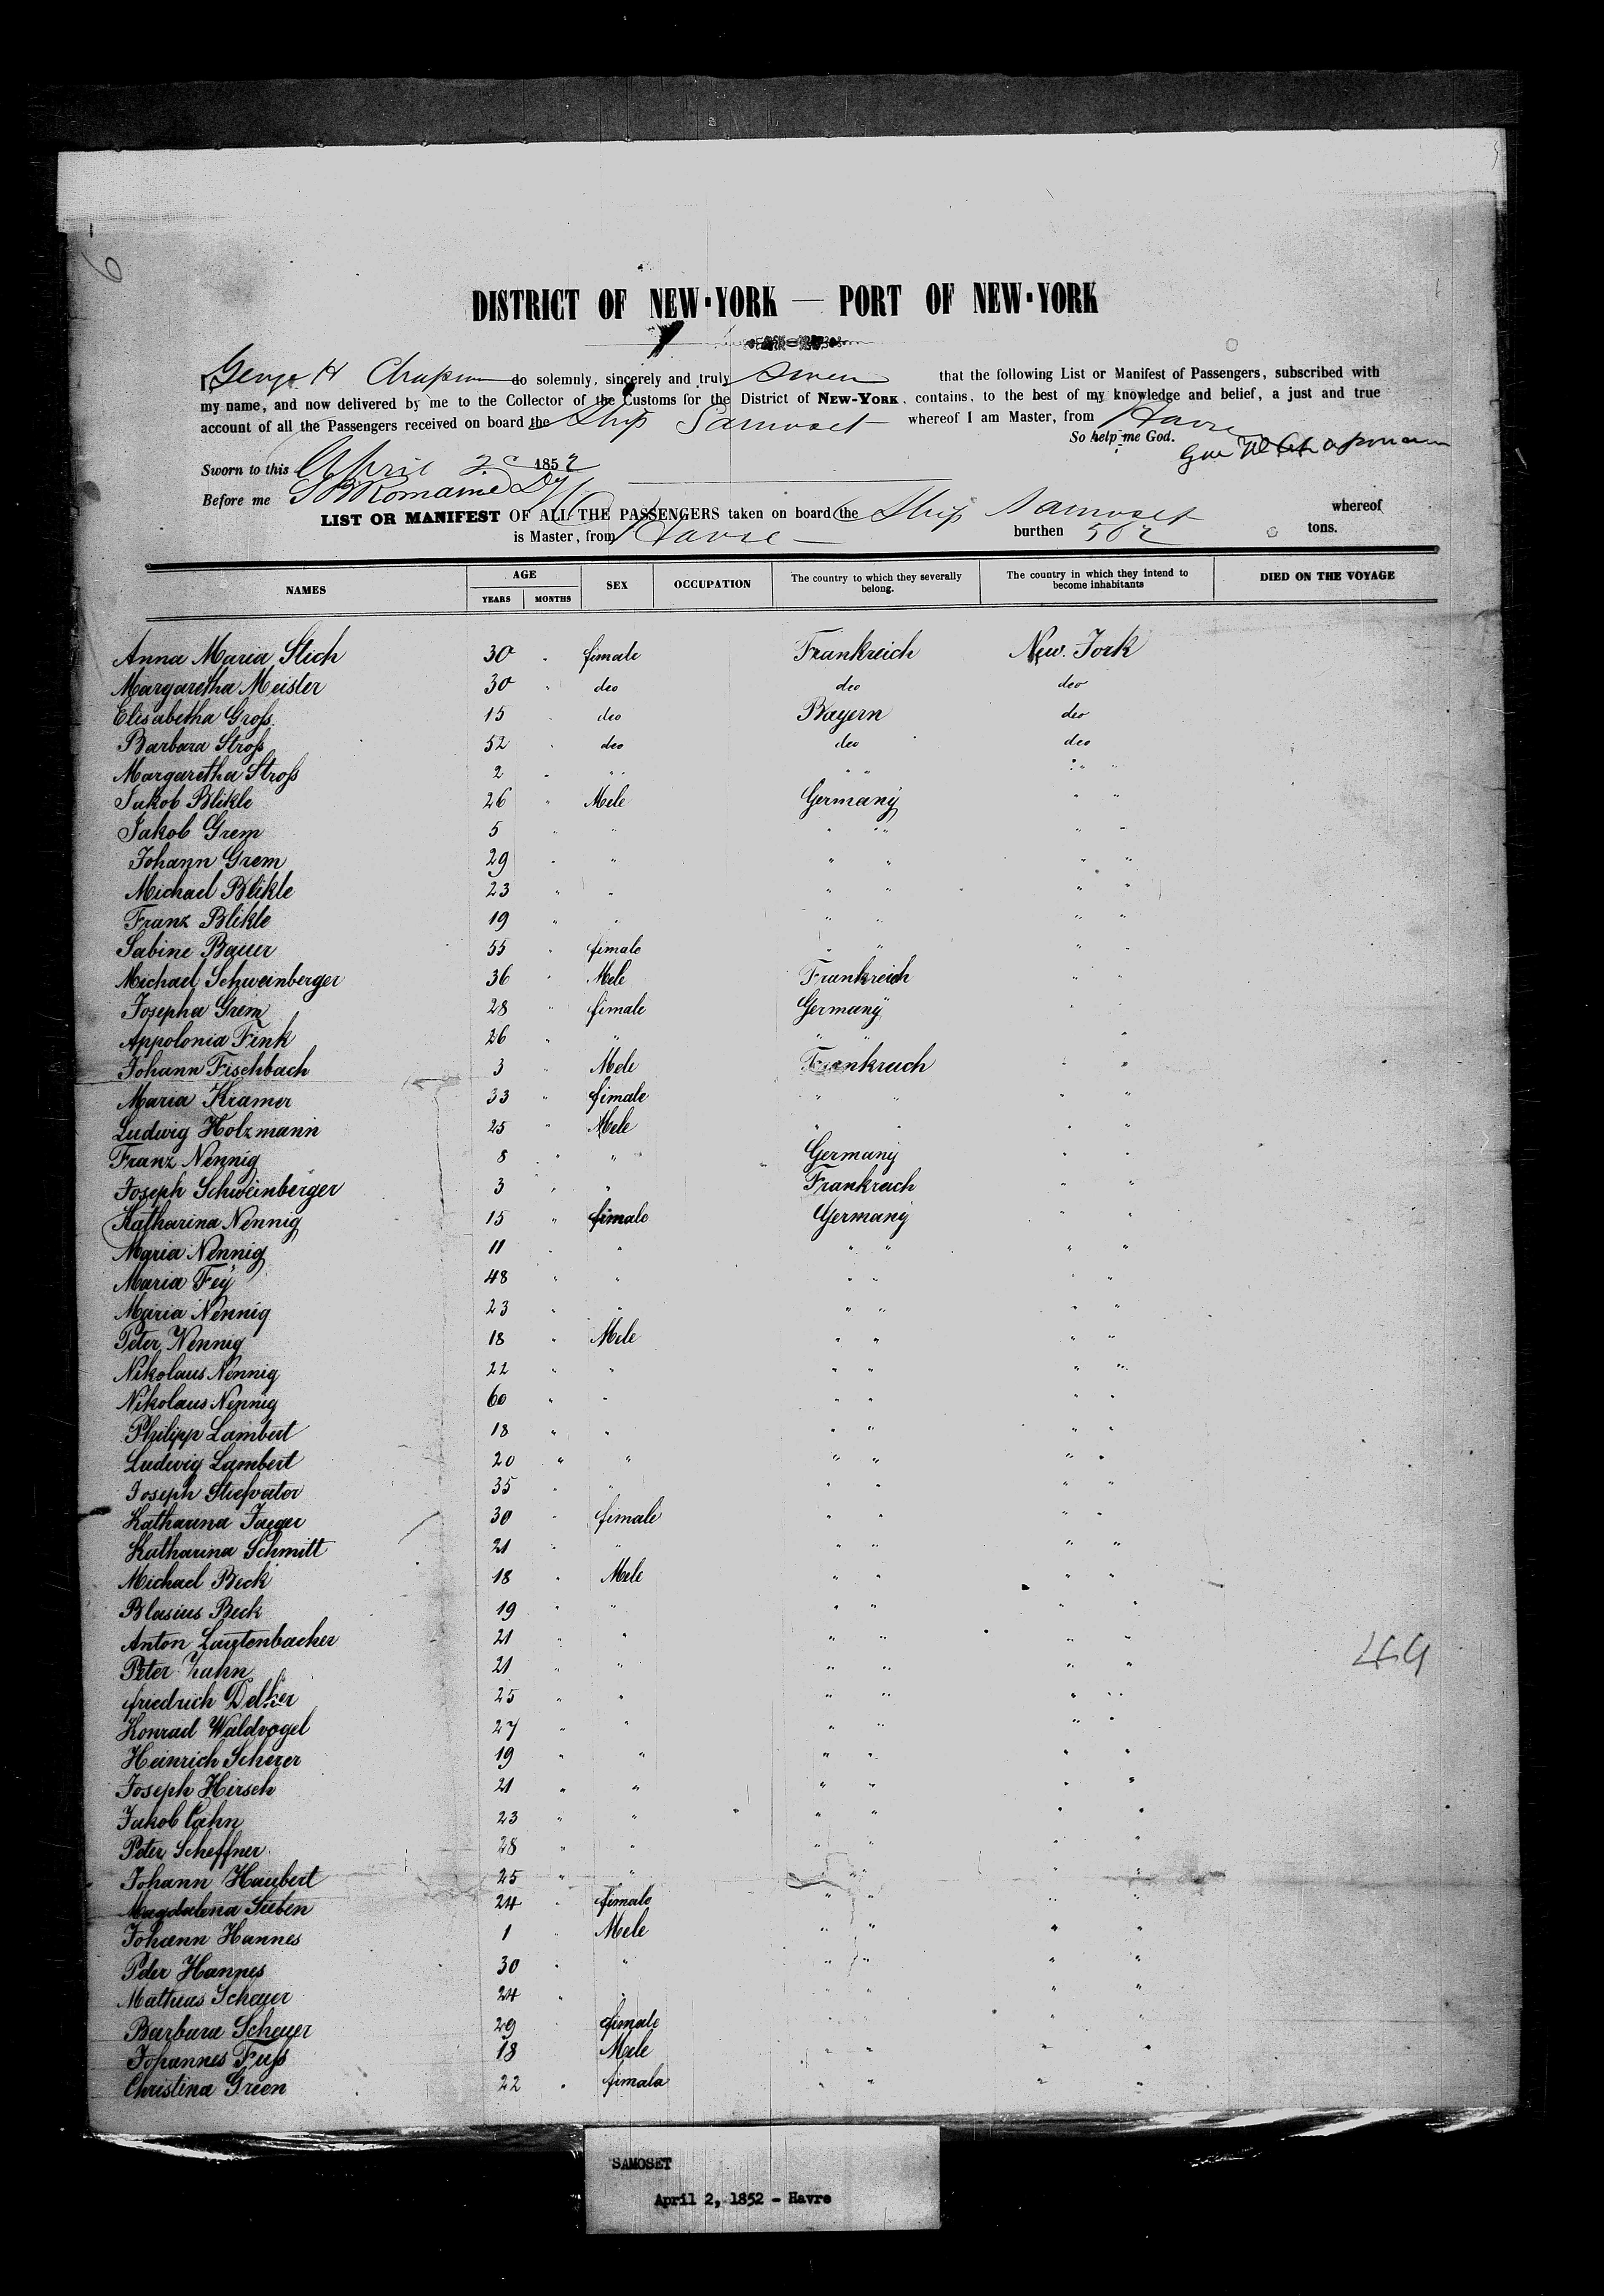 6
DISTRICT OF NEW-YORK — PORT OF NEW-YORK
I, George H Chapman do solemnly, sincerely and truly swear that the following List or Manifest of Passengers, subscribed with
my name, and now delivered by me to the Collector of the Customs for the District of NEW-YORK, contains, to the best of my knowledge and belief, a just and true
account of all the Passengers received on board the Ship Samoset whereof I am Master, from Havre
So help me God.
Geo H Chapman
Sworn to this April 2d 1852
Before me S B Romaine Dy
LIST OR MANIFEST OF ALL THE PASSENGERS taken on board the Ship Samoset whereof
is Master, from Havre burthen tons.
NAMES AGE YEARS MONTHS SEX OCCUPATION The country to which they severally belong. The country in which they intend to become inhabitants DIED ON THE VOYAGE
Anna Maria Stich 30 " fimale Frankreich New. York
Margaretha Meister 30 " deo deo deo
Elisabetha Groß 15 " deo Bayern deo
Barbara Stroß 52 " deo deo deo
Margaretha Stroß 2 " " " " " "
Jakob Blikle 26 " Mele Germany " "
Jakob Grem 5 " " " " " "
Johann Grem 29 " " " " " "
Michael Blikle 23 " " " " " "
Franz Blikle 19 " " " " " "
Sabine Bauer 55 " fimale " " " "
Michael Schweinberger 36 " Mele Frankreich " "
Josepha Grem 28 " fimale Germany " "
Appolonia Fink 26 " " " " "
Johann Fischbach 3 " Mele Frankreich " "
Maria Kramer 33 " fimale " " " "
Ludwig Holzmann 25 " Mele " " " "
Franz Nennig 8 " " Germany " "
Joseph Schweinberger 3 " " Frankreich " "
Katharina Nennig 15 " fimale Germany " "
Maria Nennig 11 " " " " " "
Maria Fey 48 " " " " " "
Maria Nennig 23 " " " " " "
Peter Nennig 18 " Mele " " " "
Nikolaus Nennig 22 " " " " " "
Nikolaus Nennig 60 " " " " " "
Philipp Lambert 18 " " " " " "
Ludwig Lambert 20 " " " " " "
Joseph Stiefvater 35 " " " " " "
Katharina Jaeger 30 " fimale " " " "
Katharina Schmitt 21 " " " " " "
Michael Beck 18 " Mele " " " "
Blasius Beck 19 " " " " " "
Anton Lautenbacher 21 " " " " " "
Peter Zahn 21 " " " " " "
friedrich Delker 25 " " " " " "
Konrad Waldvogel 27 " " " " " "
Heinrich Scherer 19 " " " " " "
Joseph Hirsch 21 " " " " " "
Jakob Cahn 23 " " " " " "
Peter Scheffner 28 " " " " " "
Johann Haubert 25 " " " " " "
Magdalena Sieben 24 " fimale " " " "
Johann Hannes 1 " Mele " " " "
Peter Hannes 30 " " " " " "
Mathias Scheuer 24 " " " " "
Barbara Scheuer 29 fimale " "
Johannes Fuß 18 Mele " " " "
Christina Green 22 " fimala " " " "
49
SAMOSET
April 2, 1852 - Havre